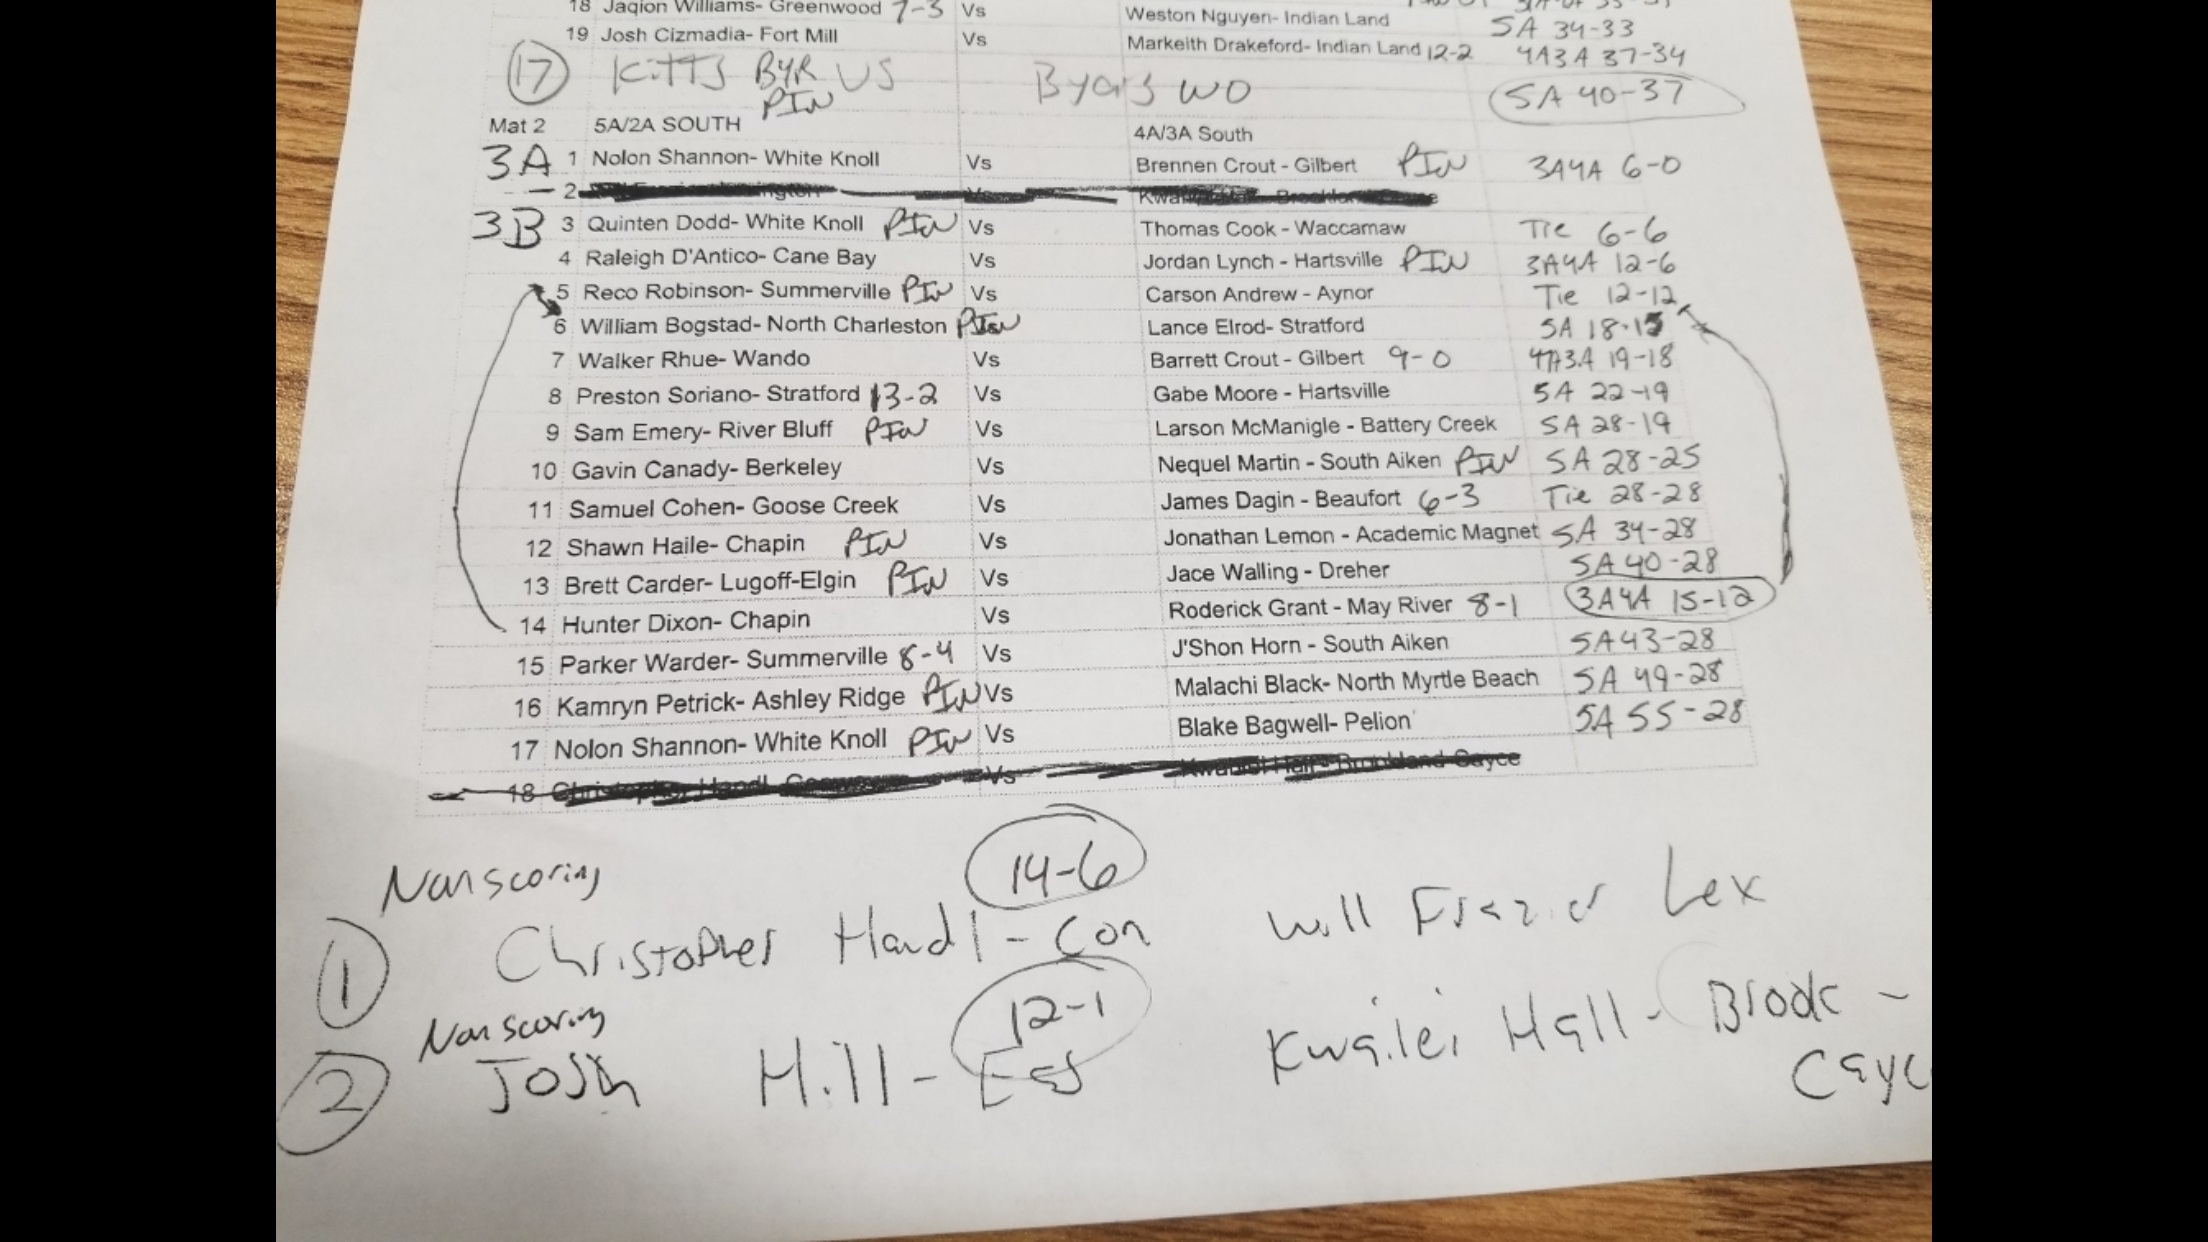 18 Jaqion Williams- Greenwood 7-3 Vs Weston Nguyen- Indian Land 5A 34-33
19 Josh Cizmadia- Fort Mill Vs Markeith Drakeford- Indian Land 12-2 4A3A 37-34
17 Kitts BYR VS Byars WO 5A 40-37
PIN
Mat 2 5A/2A SOUTH 4A/3A South
3A 1 Nolon Shannon- White Knoll Vs Brennen Crout - Gilbert PIN 3A4A 6-0
2
3B 3 Quinten Dodd- White Knoll PIN Vs Thomas Cook - Waccamaw Tie 6-6
4 Raleigh D'Antico- Cane Bay Vs Jordan Lynch - Hartsville PIN 3A4A 12-6
5 Reco Robinson- Summerville PIN Vs Carson Andrew - Aynor Tie 12-12
6 William Bogstad- North Charleston PIN Vs Lance Elrod- Stratford 5A 18-15
7 Walker Rhue- Wando Vs Barrett Crout - Gilbert 9-0 4A3A 19-18
8 Preston Soriano- Stratford 13-2 Vs Gabe Moore - Hartsville 5A 22-19
9 Sam Emery- River Bluff PIN Vs Larson McManigle - Battery Creek 5A 28-19
10 Gavin Canady- Berkeley Vs Nequel Martin - South Aiken PIN 5A 28-25
11 Samuel Cohen- Goose Creek Vs James Dagin - Beaufort 6-3 Tie 28-28
12 Shawn Haile- Chapin PIN Vs Jonathan Lemon - Academic Magnet 5A 34-28
13 Brett Carder- Lugoff-Elgin PIN Vs Jace Walling - Dreher 5A 40-28
14 Hunter Dixon- Chapin Vs Roderick Grant - May River 8-1 3A4A 15-12
15 Parker Warder- Summerville 8-4 Vs J'Shon Horn - South Aiken 5A 43-28
16 Kamryn Petrick- Ashley Ridge PIN Vs Malachi Black- North Myrtle Beach 5A 49-28
17 Nolon Shannon- White Knoll PIN Vs Blake Bagwell- Pelion 5A 55-28
18 Vs Brookland Cayce
Nonscoring 14-6
1 Christopher Handl - Con Will Frazier Lex
Nonscoring 12-1
2 Josh Hill - Eas Kwailei Hall - Brook -
Cayc